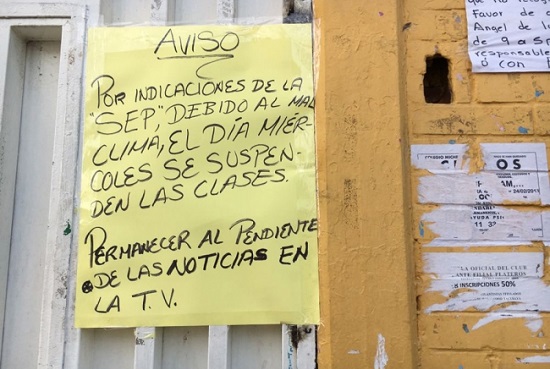 AVISO
POR INDICACIONES DE LA
"SEP," DEBIDO AL MAL
CLIMA, EL DÍA MIÉR-
COLES SE SUSPEN-
DEN LAS CLASES.
PERMANECER AL PENDIENTE
DE LAS NOTICIAS EN
LA T.V.
Favor de
Angel de
de 9 a
responsable
ó con
OS
24/02/201
LA OFICIAL DEL CLUB
ANTE FILIAL PLATEROS
INSCRIPCIONES 50%